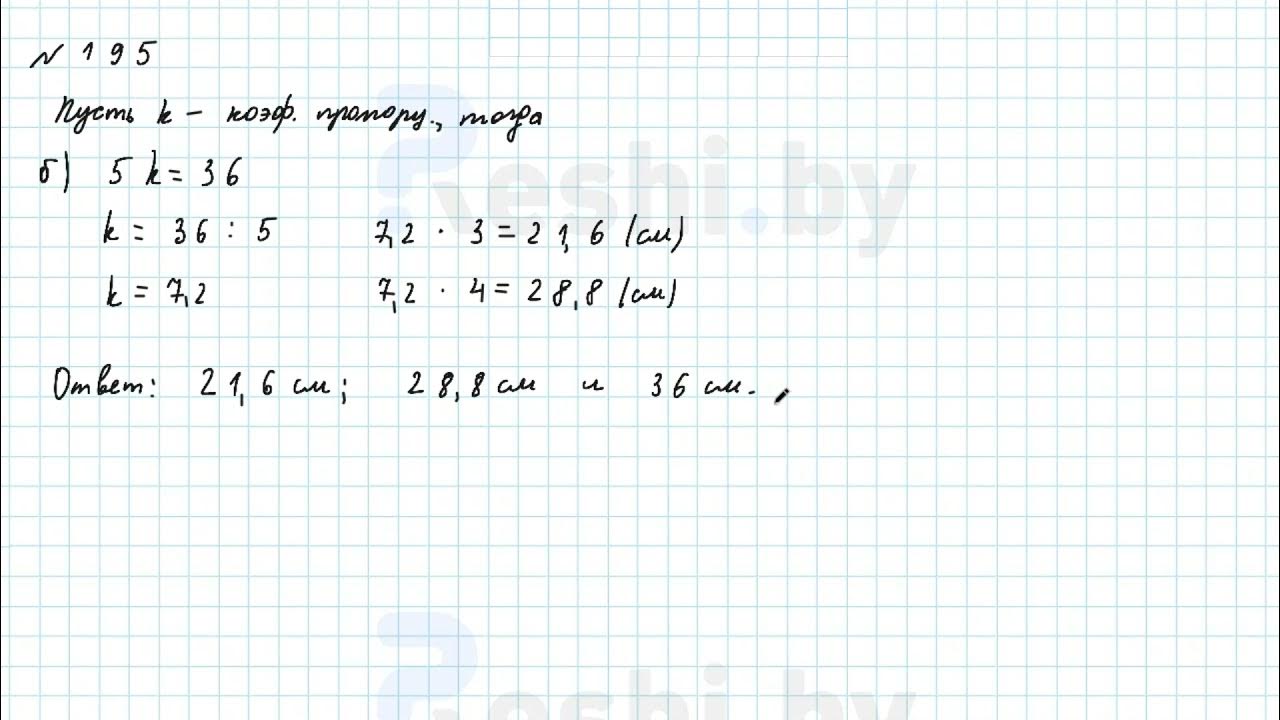 № 195
Пусть k – коэф. пропорц., тогда
б) 5k = 36
k = 36 : 5 7,2 · 3 = 21,6 (см)
k = 7,2 7,2 · 4 = 28,8 (см)
Ответ: 21,6 см; 28,8 см и 36 см.
Reshi.by
Reshi.by